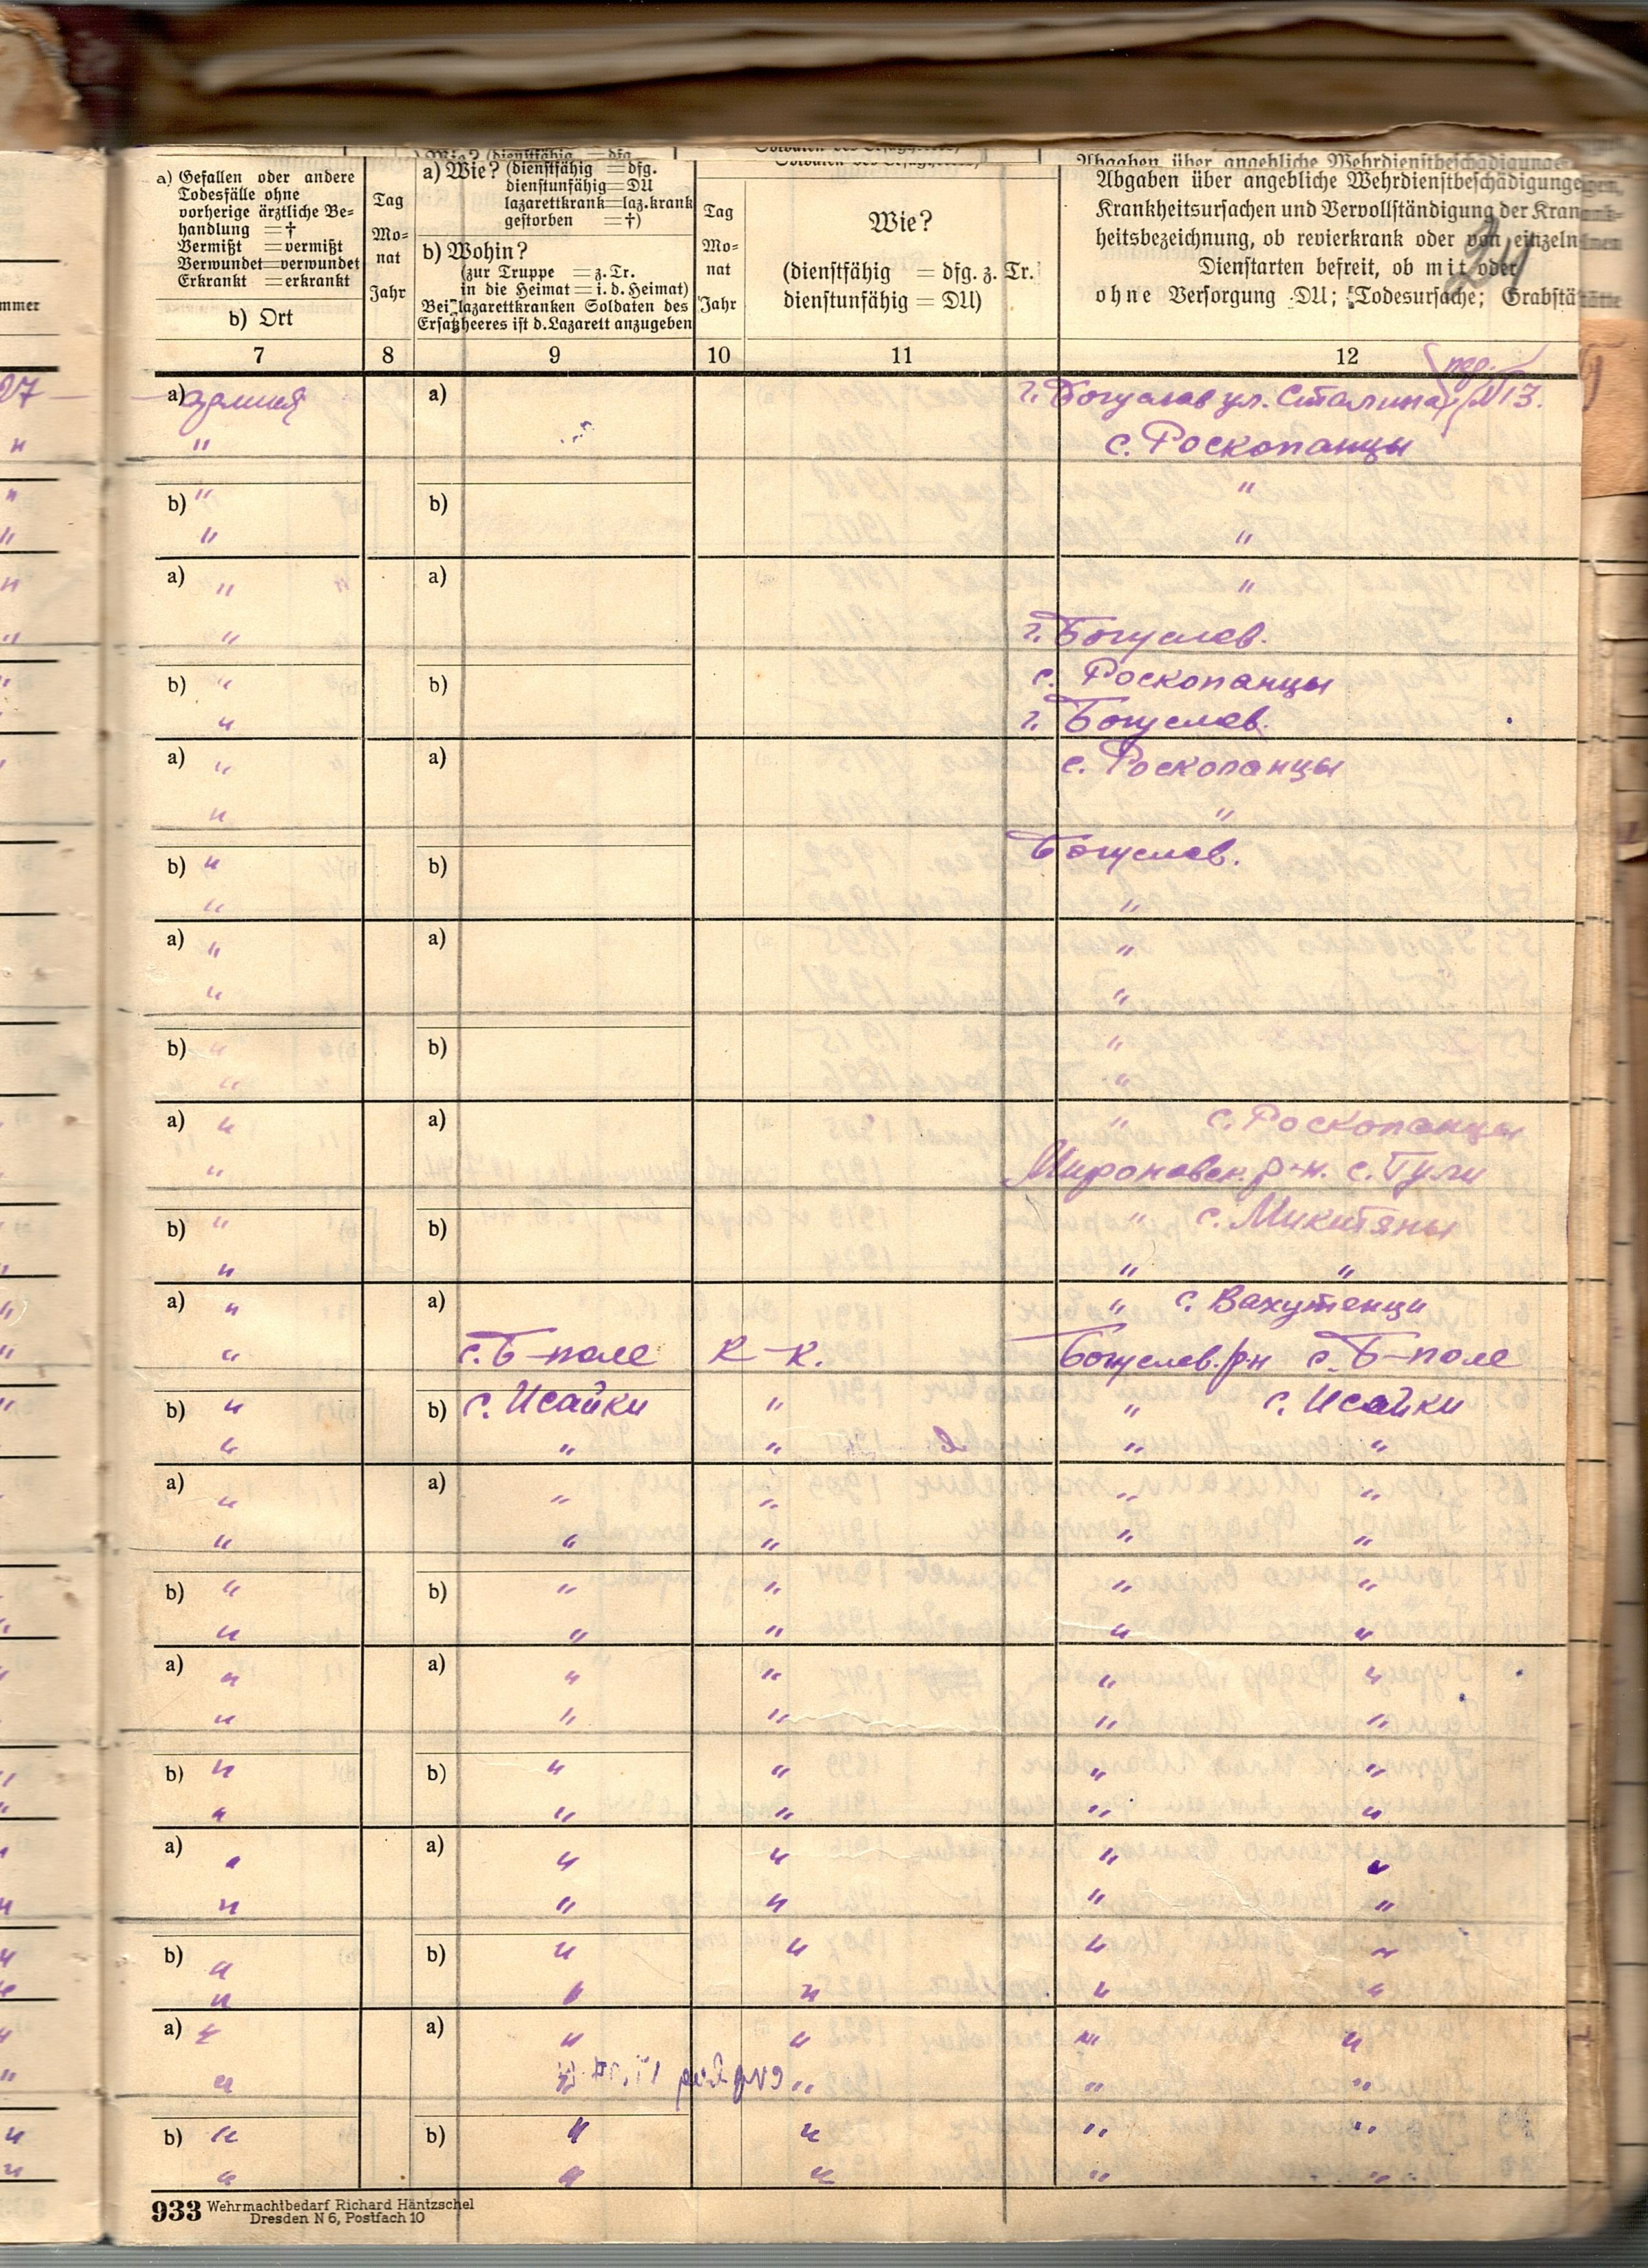 a) Gefallen oder andere
Todesfälle ohne
vorherige ärztliche Be-
handlung =†
Vermißt =vermißt
Verwundet=verwundet
Erkrankt =erkrankt
b) Ort
Tag
Mo-
nat
Jahr
a) Wie? (dienstfähig =dfg.
dienstunfähig=DU
lazarettkrank=laz.krank
gestorben =†)
b) Wohin?
(zur Truppe =z.Tr.
in die Heimat=i.d.Heimat)
Bei lazarettkranken Soldaten des
Ersatzheeres ist d.Lazarett anzugeben
Tag
Mo-
nat
Jahr
Wie?
(dienstfähig = dfg. z. Tr.
dienstunfähig = DU)
Abgaben über angebliche Wehrdienstbeschädigungen,
Krankheitsursachen und Vervollständigung der Krank-
heitsbezeichnung, ob revierkrank oder von einzelnen
Dienstarten befreit, ob mit oder
ohne Versorgung DU; Todesursache; Grabstätte
7 8 9 10 11 12
27 a) армия a) г. Богуслав ул. Сталина пер. №13.
" " с. Роскопанцы
" b) " b) "
" " "
" a) " a) "
" " г. Богуслав.
" b) " b) с. Роскопанцы
" г. Богуслав.
a) " a) с. Роскопанцы
" "
b) " b) Богуслав.
" "
a) " a) "
" "
b) " b) "
" "
a) " a) " с. Роскопанцы
" Мироновск. р-н. с. Гули
b) " b) " с. Микитяны
" " "
a) " a) " с. Вахутенци
" с. Б-поле К-К. Богуслав. р-н с. Б-поле
b) " b) с. Исайки " " с. Исайки
" " " " "
a) " a) " " " "
" " " " "
b) " b) " " " "
" " " " "
a) " a) " " " "
" " " " "
b) " b) " " " "
" " " " "
a) " a) " " " "
" " " " "
b) " b) " " " "
" " " " "
a) " a) " " " "
" " " "
b) " b) " " " "
" " " " "
933 Wehrmachtbedarf Richard Häntzschel
Dresden N 6, Postfach 10